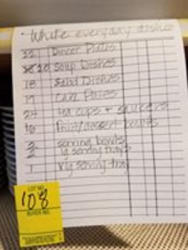 White everyday dishes
23 Dinner Plates
20 Soup Dishes
18 Salad Dishes
19 Cake Plates
24 tea cups & saucers
16 fruit/dessert bowls
3 serving bowls
2 lg serving trays
1 serving tray
LOT NO.
108
BUYER NO.